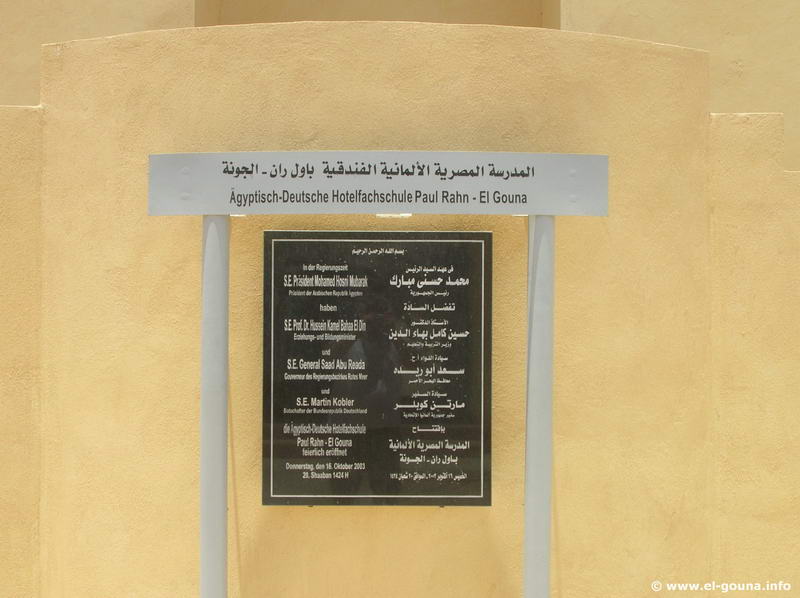 المدرسة المصرية الألمانية الفندقية باول ران - الجونة
Ägyptisch-Deutsche Hotelfachschule Paul Rahn - El Gouna
بسم الله الرحمن الرحيم
In der Regierungszeit
S.E. Präsident Mohamed Hosni Mubarak
Präsident der Arabischen Republik Ägypten
haben
S.E. Prof. Dr. Hussein Kamel Bahaa El Din
Erziehungs- und Bildungsminister
und
S.E. General Saad Abu Reada
Gouverneur des Regierungsbezirkes Rotes Meer
und
S.E. Martin Kobler
Botschafter der Bundesrepublik Deutschland
die Ägyptisch-Deutsche Hotelfachschule
Paul Rahn - El Gouna
feierlich eröffnet
Donnerstag, den 16. Oktober 2003
20. Shaaban 1424 H
فى عهد السيد الرئيس
محمد حسنى مبارك
رئيس الجمهورية
تفضل السادة
الأستاذ الدكتور
حسين كامل بهاء الدين
وزير التربية والتعليم
سيادة اللواء أ.ح.
سعد أبو ريده
محافظ البحر الأحمر
سيادة السفير
مارتن كوبلر
سفير جمهورية ألمانيا الإتحادية
بإفتتاح
المدرسة المصرية الألمانية
باول ران - الجونة
الخميس ١٦ أكتوبر ٢٠٠٣، الموافق ٢٠ شعبان ١٤٢٤
© www.el-gouna.info